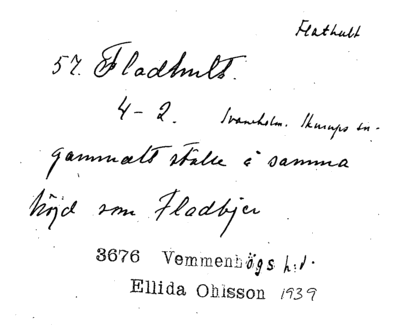 Flathult
57. Fladhults.
4-2. Svaneholm. Skurups sn.
gammalt ställe i samma
höjd som Fladbjer
3676 Vemmenhögs h:d.
Ellida Ohlsson 1939